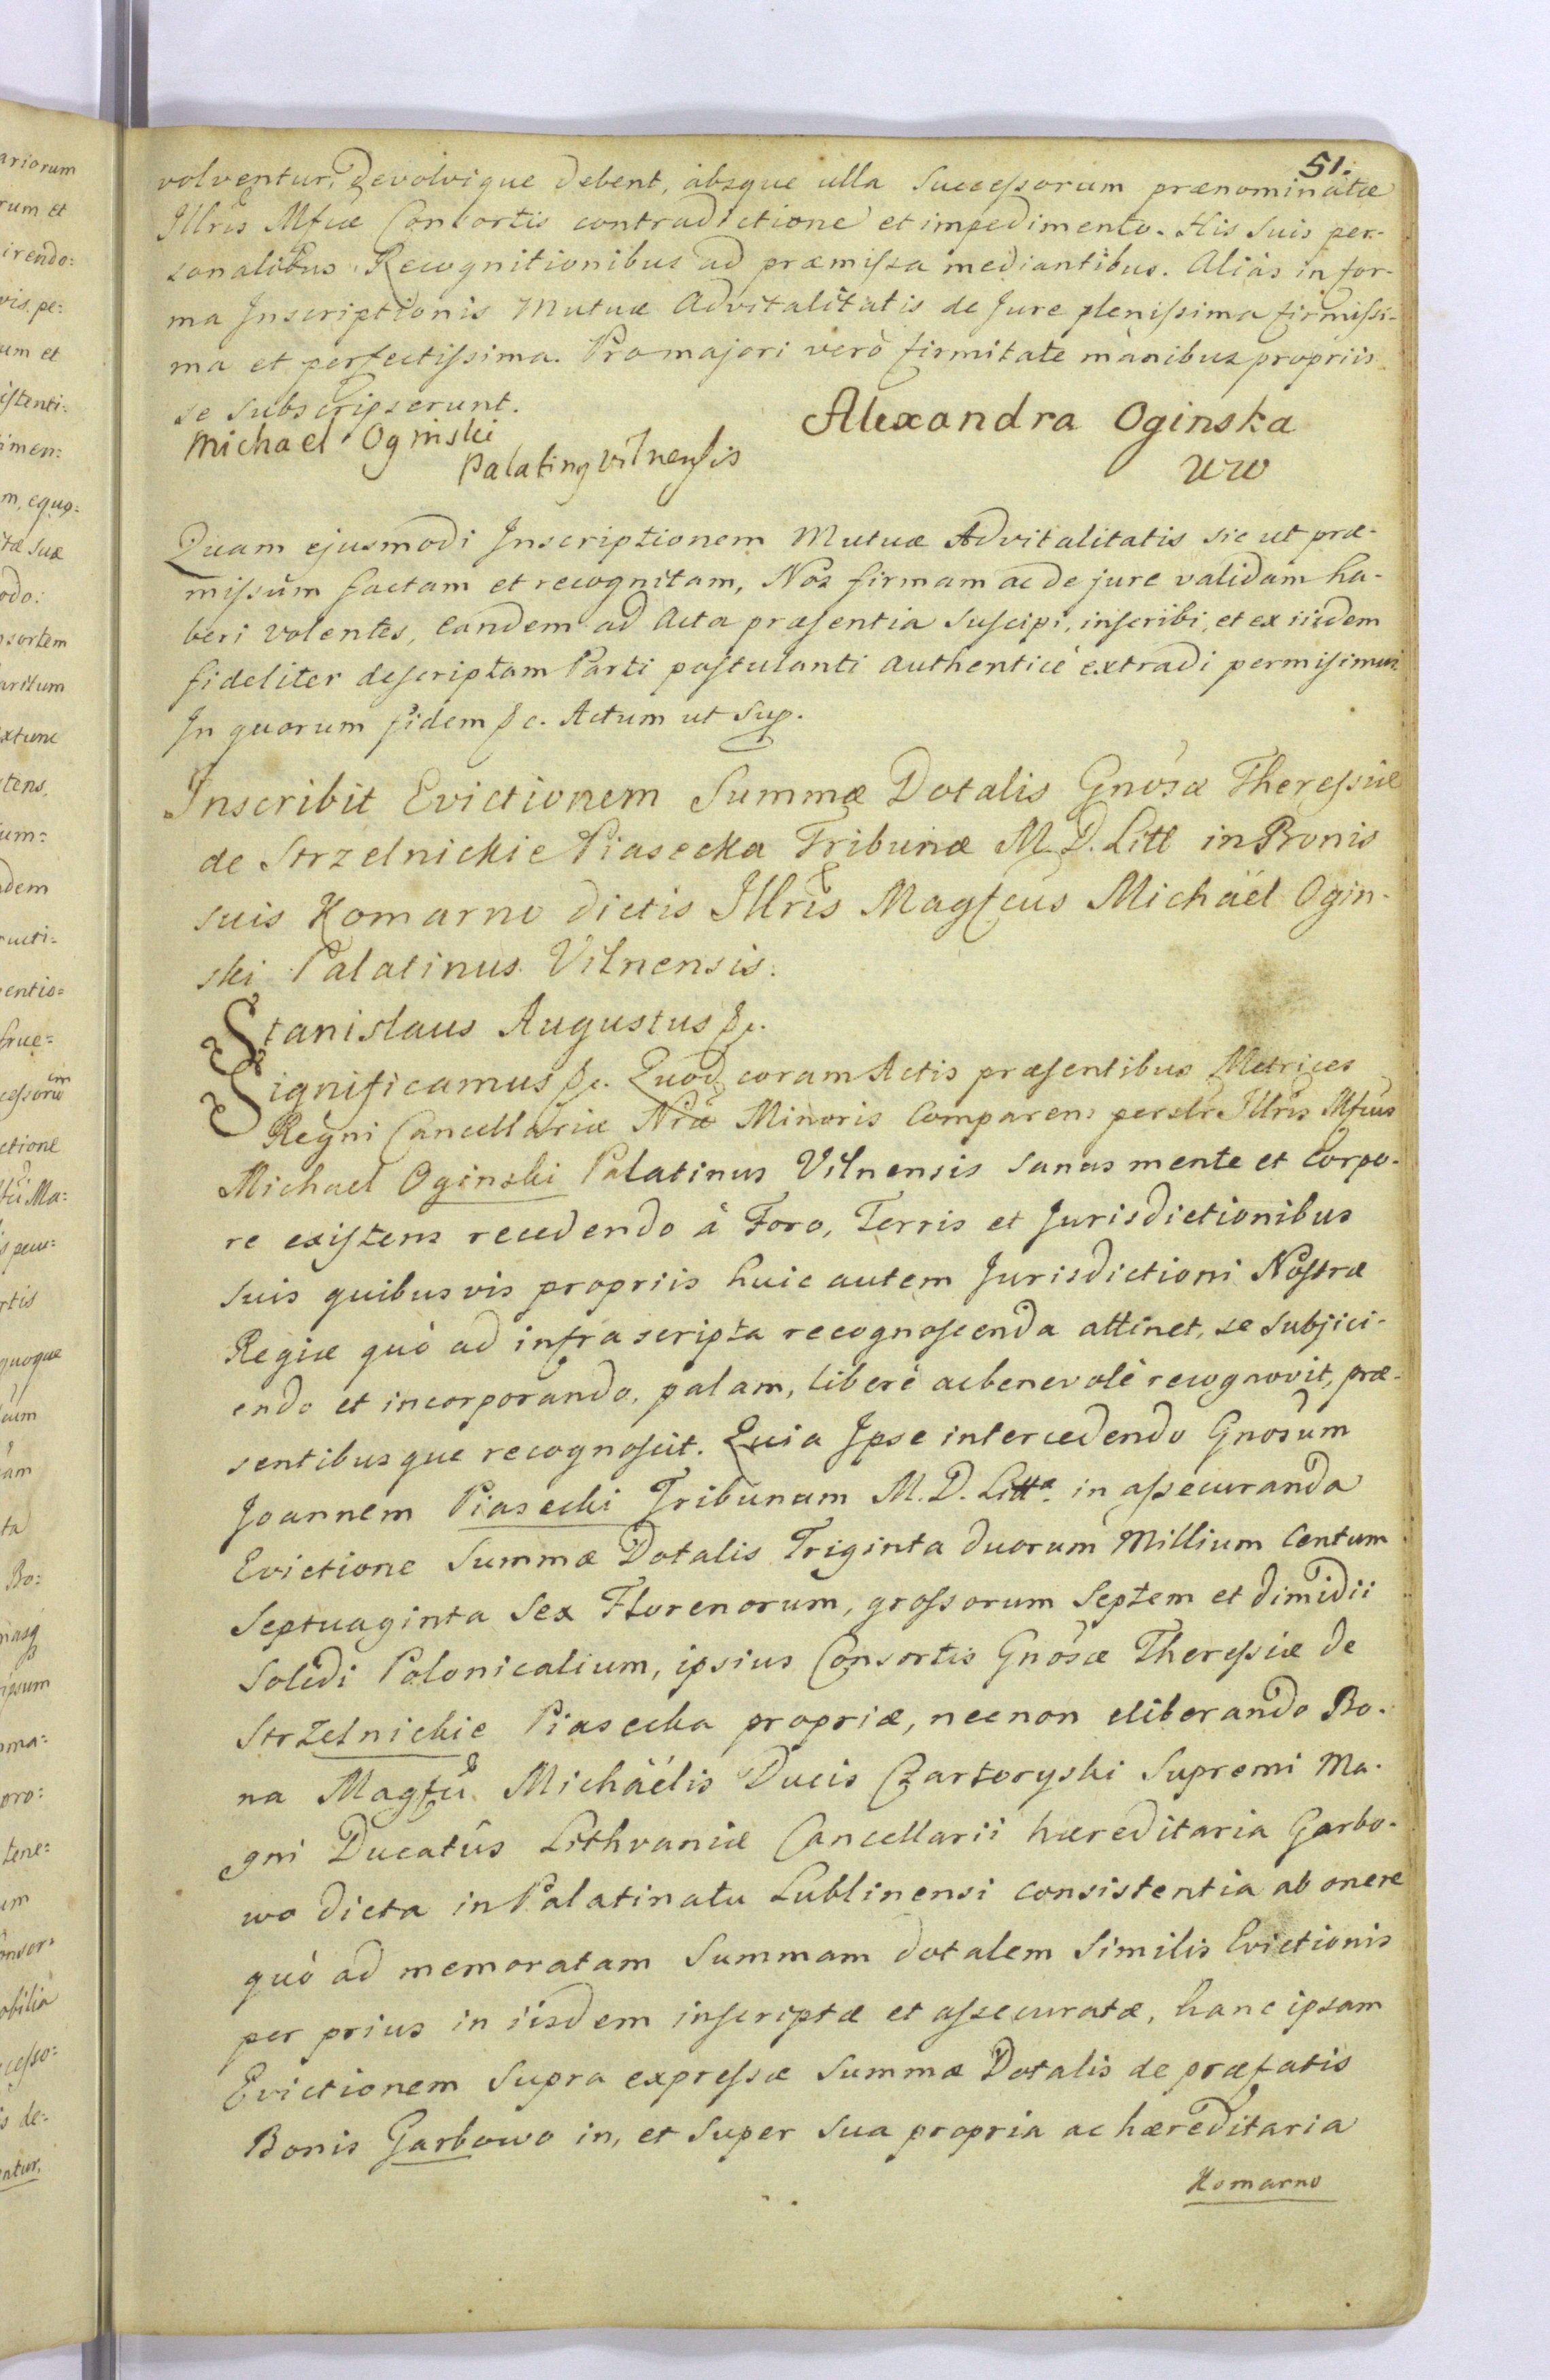 51.
volventur, devolvique debent, absque ulla Successorum prænominatæ
Illris Mfcæ Consortis contradictione et impedimento. His suis per-
sonalibus Recognitionibus ad præmissa mediantibus. Alias in for-
ma Inscriptionis Mutuæ Advitalitatis de Jure plenissima firmissi-
ma et perfectissima. Pro majori verò firmitate manibus propriis
se subscripserunt.
Michael Oginski
Palatinus Vilnensis
Alexandra Oginska
WW
Quam ejusmodi Inscriptionem Mutuæ Advitalitatis sic ut præ-
missum factam et recognitam, Nos firmam ac de jure validam ha-
beri volentes, eandem ad Acta præsentia suscipi, inscribi, et ex iisdem
fideliter descriptam Parti postulanti authenticè extradi permisimus
In quorum fidem &c. Actum ut sup.
Inscribit Evictionem Summæ Dotalis Gnosæ Theressiæ
de Strzelnickie Piasecka Tribunæ M. D. Litt in Bonis
suis Komarno dictis Illris Magfcus Michäel Ogin-
ski Palatinus Vilnensis.
Stanislaus Augustus &c.
Significamus &c. Quod coram Actis præsentibus Metrices
Regni Cancellariæ Nræ Minoris Comparens perslr Illris Mfcus
Michael Oginski Palatinus Vilnensis sanus mente et Corpo-
re existens recedendo à Foro, Terris et Jurisdictionibus
suis quibusvis propriis huic autem Jurisdictioni Nostræ
Regiæ quò ad infrascripta recognoscenda attinet, se subjici-
endo et incorporando, palam, liberè ac benevolè recognovit, præ-
sentibusque recognoscit. Quia Ipse intercedendo Gnosum
Joannem Piasecki Tribunum M. D. Litta in assecuranda
Evictione Summæ Dotalis Triginta duorum Millium Centum
Septuaginta Sex Florenorum, grossorum Septem et dimidii
Solidi Polonicalium, ipsius Consortis Gnosæ Theressiæ de
Strzelnickie Piasecka propriæ, necnon eliberando Bo-
na Magfci Michäelis Ducis Czartoryski Supremi Ma-
gni Ducatûs Lithvaniæ Cancellarii hæreditaria Garbo-
wo dicta in Palatinatu Lublinensi consistentia ab onere
quò ad memoratam Summam dotalem Similis Evictionis
per prius in iisdem inscriptæ et assecuratæ, hanc ipsam
Evictionem supra expressæ Summæ Dotalis de præfatis
Bonis Garbowo in, et super sua propria ac hæreditaria
Komarno